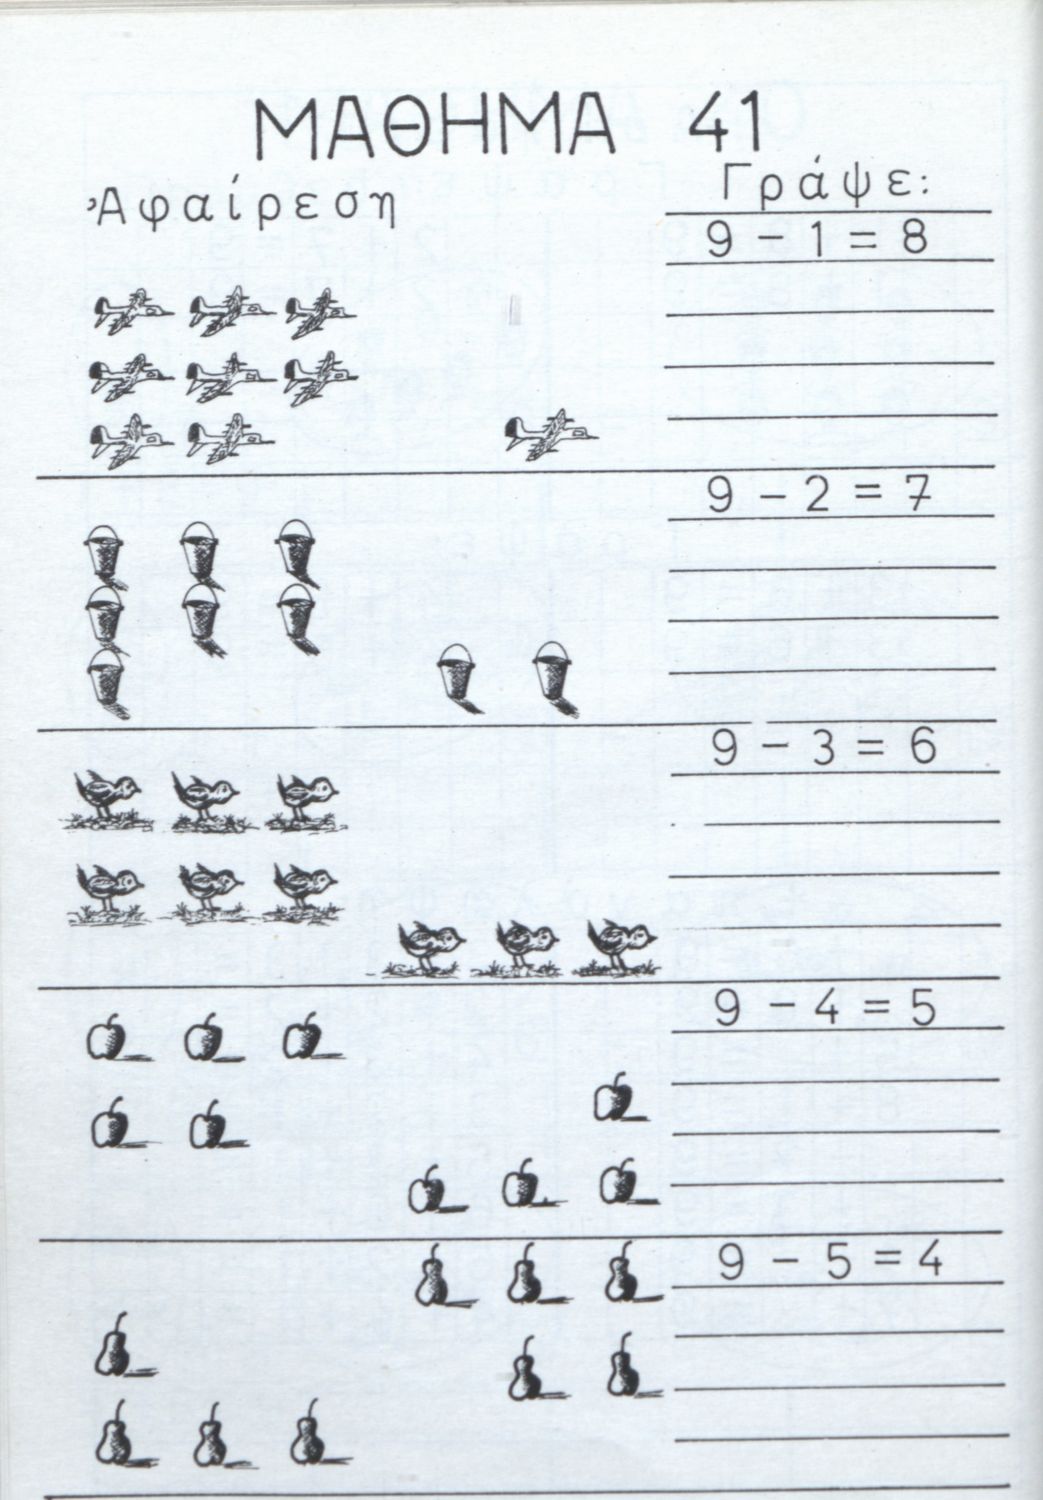 ΜΑΘΗΜΑ 41
Ἀφαίρεση
Γράψε:
9 - 1 = 8
9 - 2 = 7
9 - 3 = 6
9 - 4 = 5
9 - 5 = 4